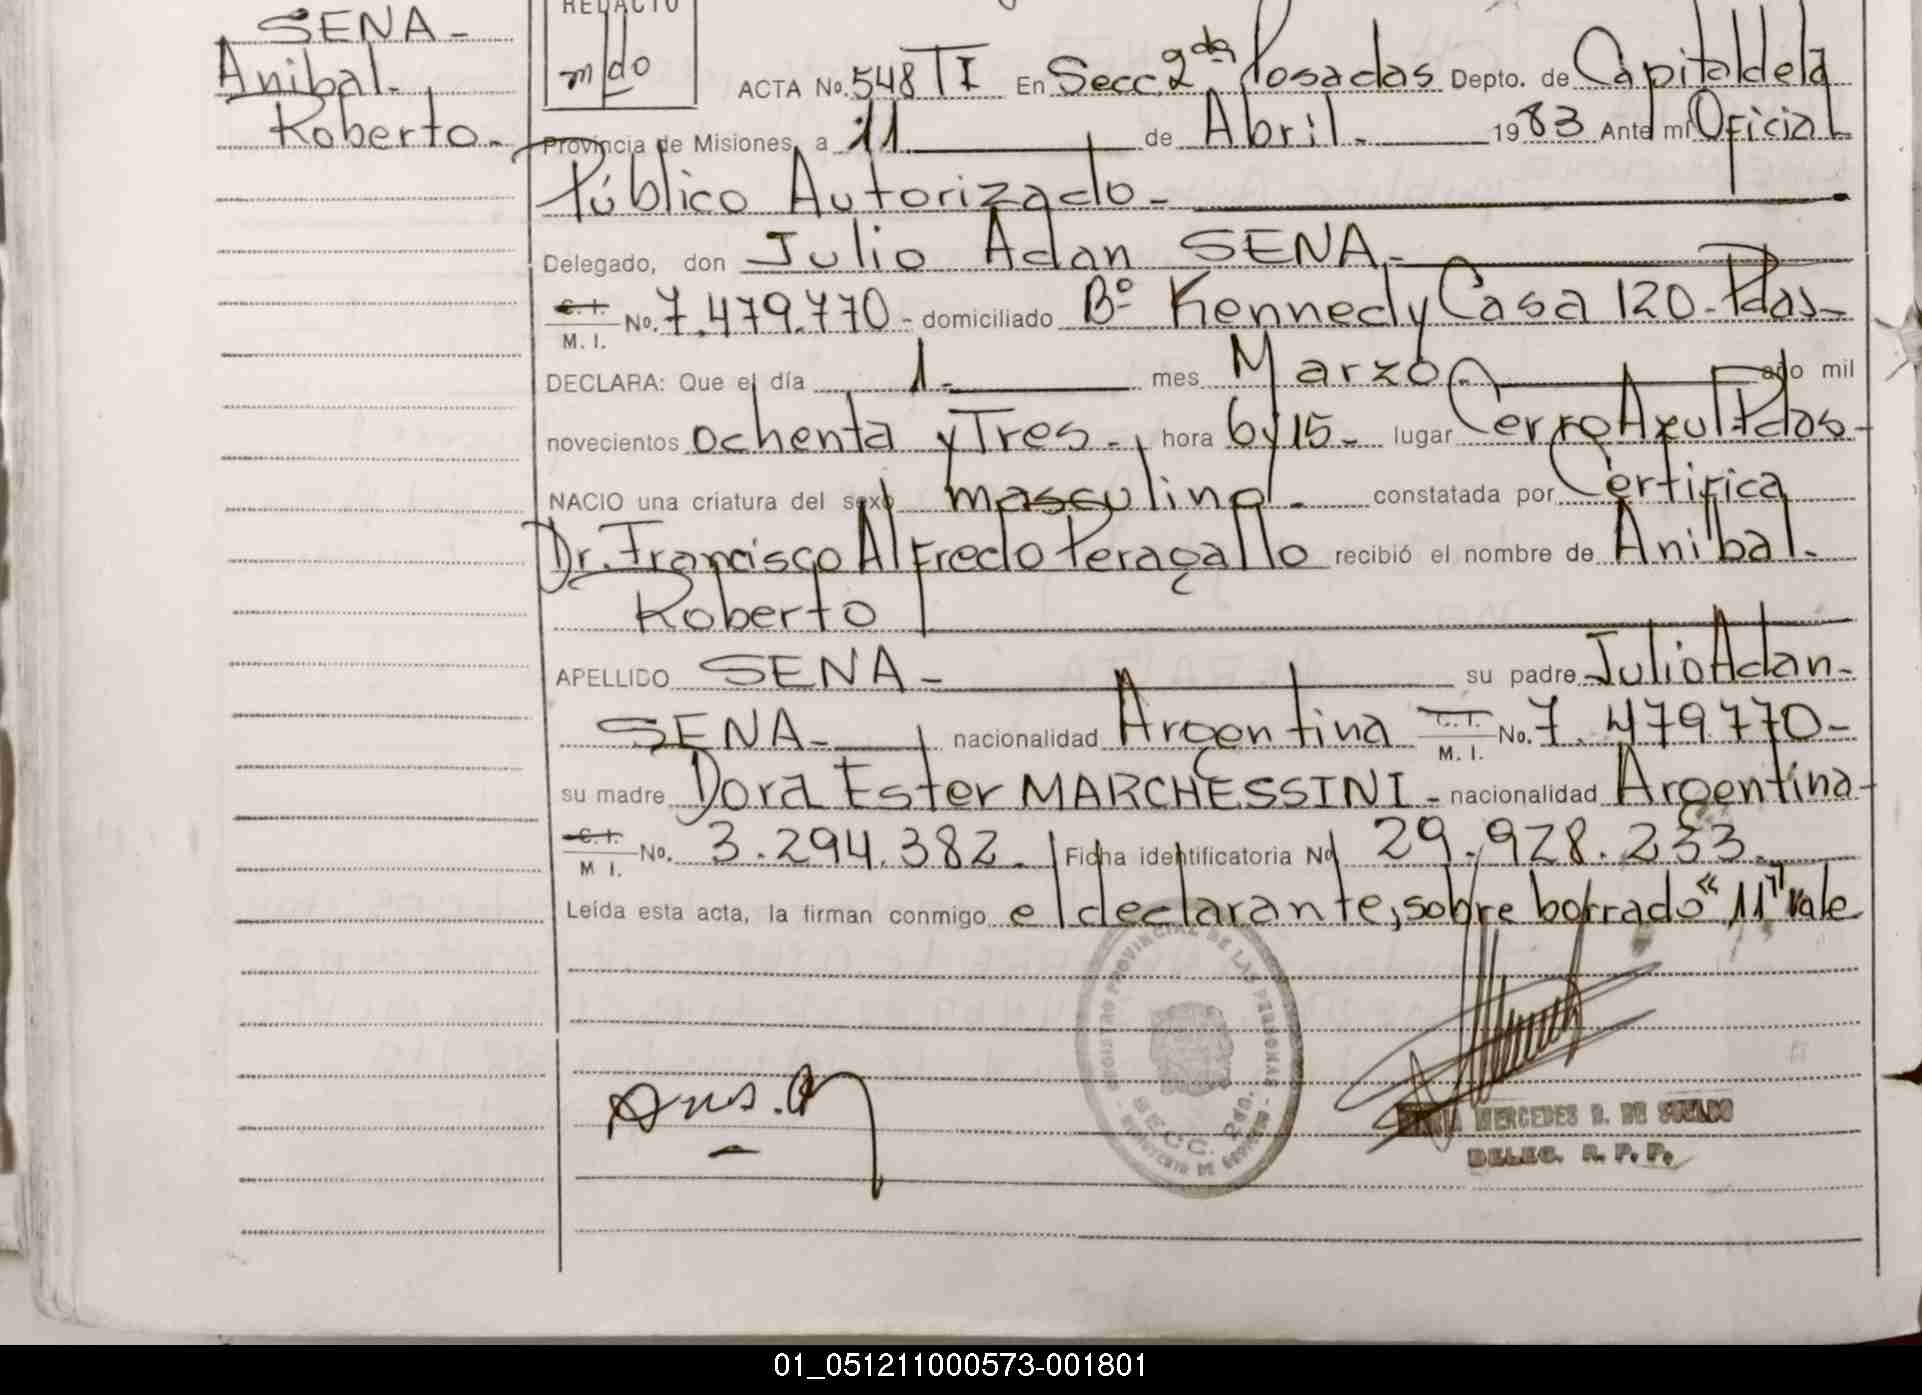 SENA-
Anibal.
Roberto.-
REDACTO
mdo
ACTA No. 548 TI En Secc. 2da Posadas Depto. de Capital de la
Provincia de Misiones, a 11 de Abril.- 1983 Ante mí Oficial
Público Autorizado-
Delegado, don Julio Adan SENA.-
C. I. No. 7.479.770- domiciliado Bº Kennedy Casa 120.-Pdas-
M. I.
DECLARA: Que el día 1.- mes Marzo.- año mil
novecientos ochenta y Tres-. hora 6y15- lugar Cerro Azul Pdas-
NACIO una criatura del sexo masculino.- constatada por Certifica
Dr. Francisco Alfredo Peragallo recibió el nombre de Anibal.
Roberto
APELLIDO SENA- su padre Julio Adan-
SENA- nacionalidad Argentina C. I. No. 7.479.770-
M. I.
su madre Dora Ester MARCHESSINI- nacionalidad Argentina-
C. I. No. 3.294.382. Ficha identificatoria No 29.928.233.
M I.
Leída esta acta, la firman conmigo el declarante, sobre borrado "11" vale
REGISTRO PROVINCIAL DE LAS PERSONAS
SECC. 2da.
MERCEDES D. DE SUELDO
DELEG. R. P. P.
01_051211000573-001801